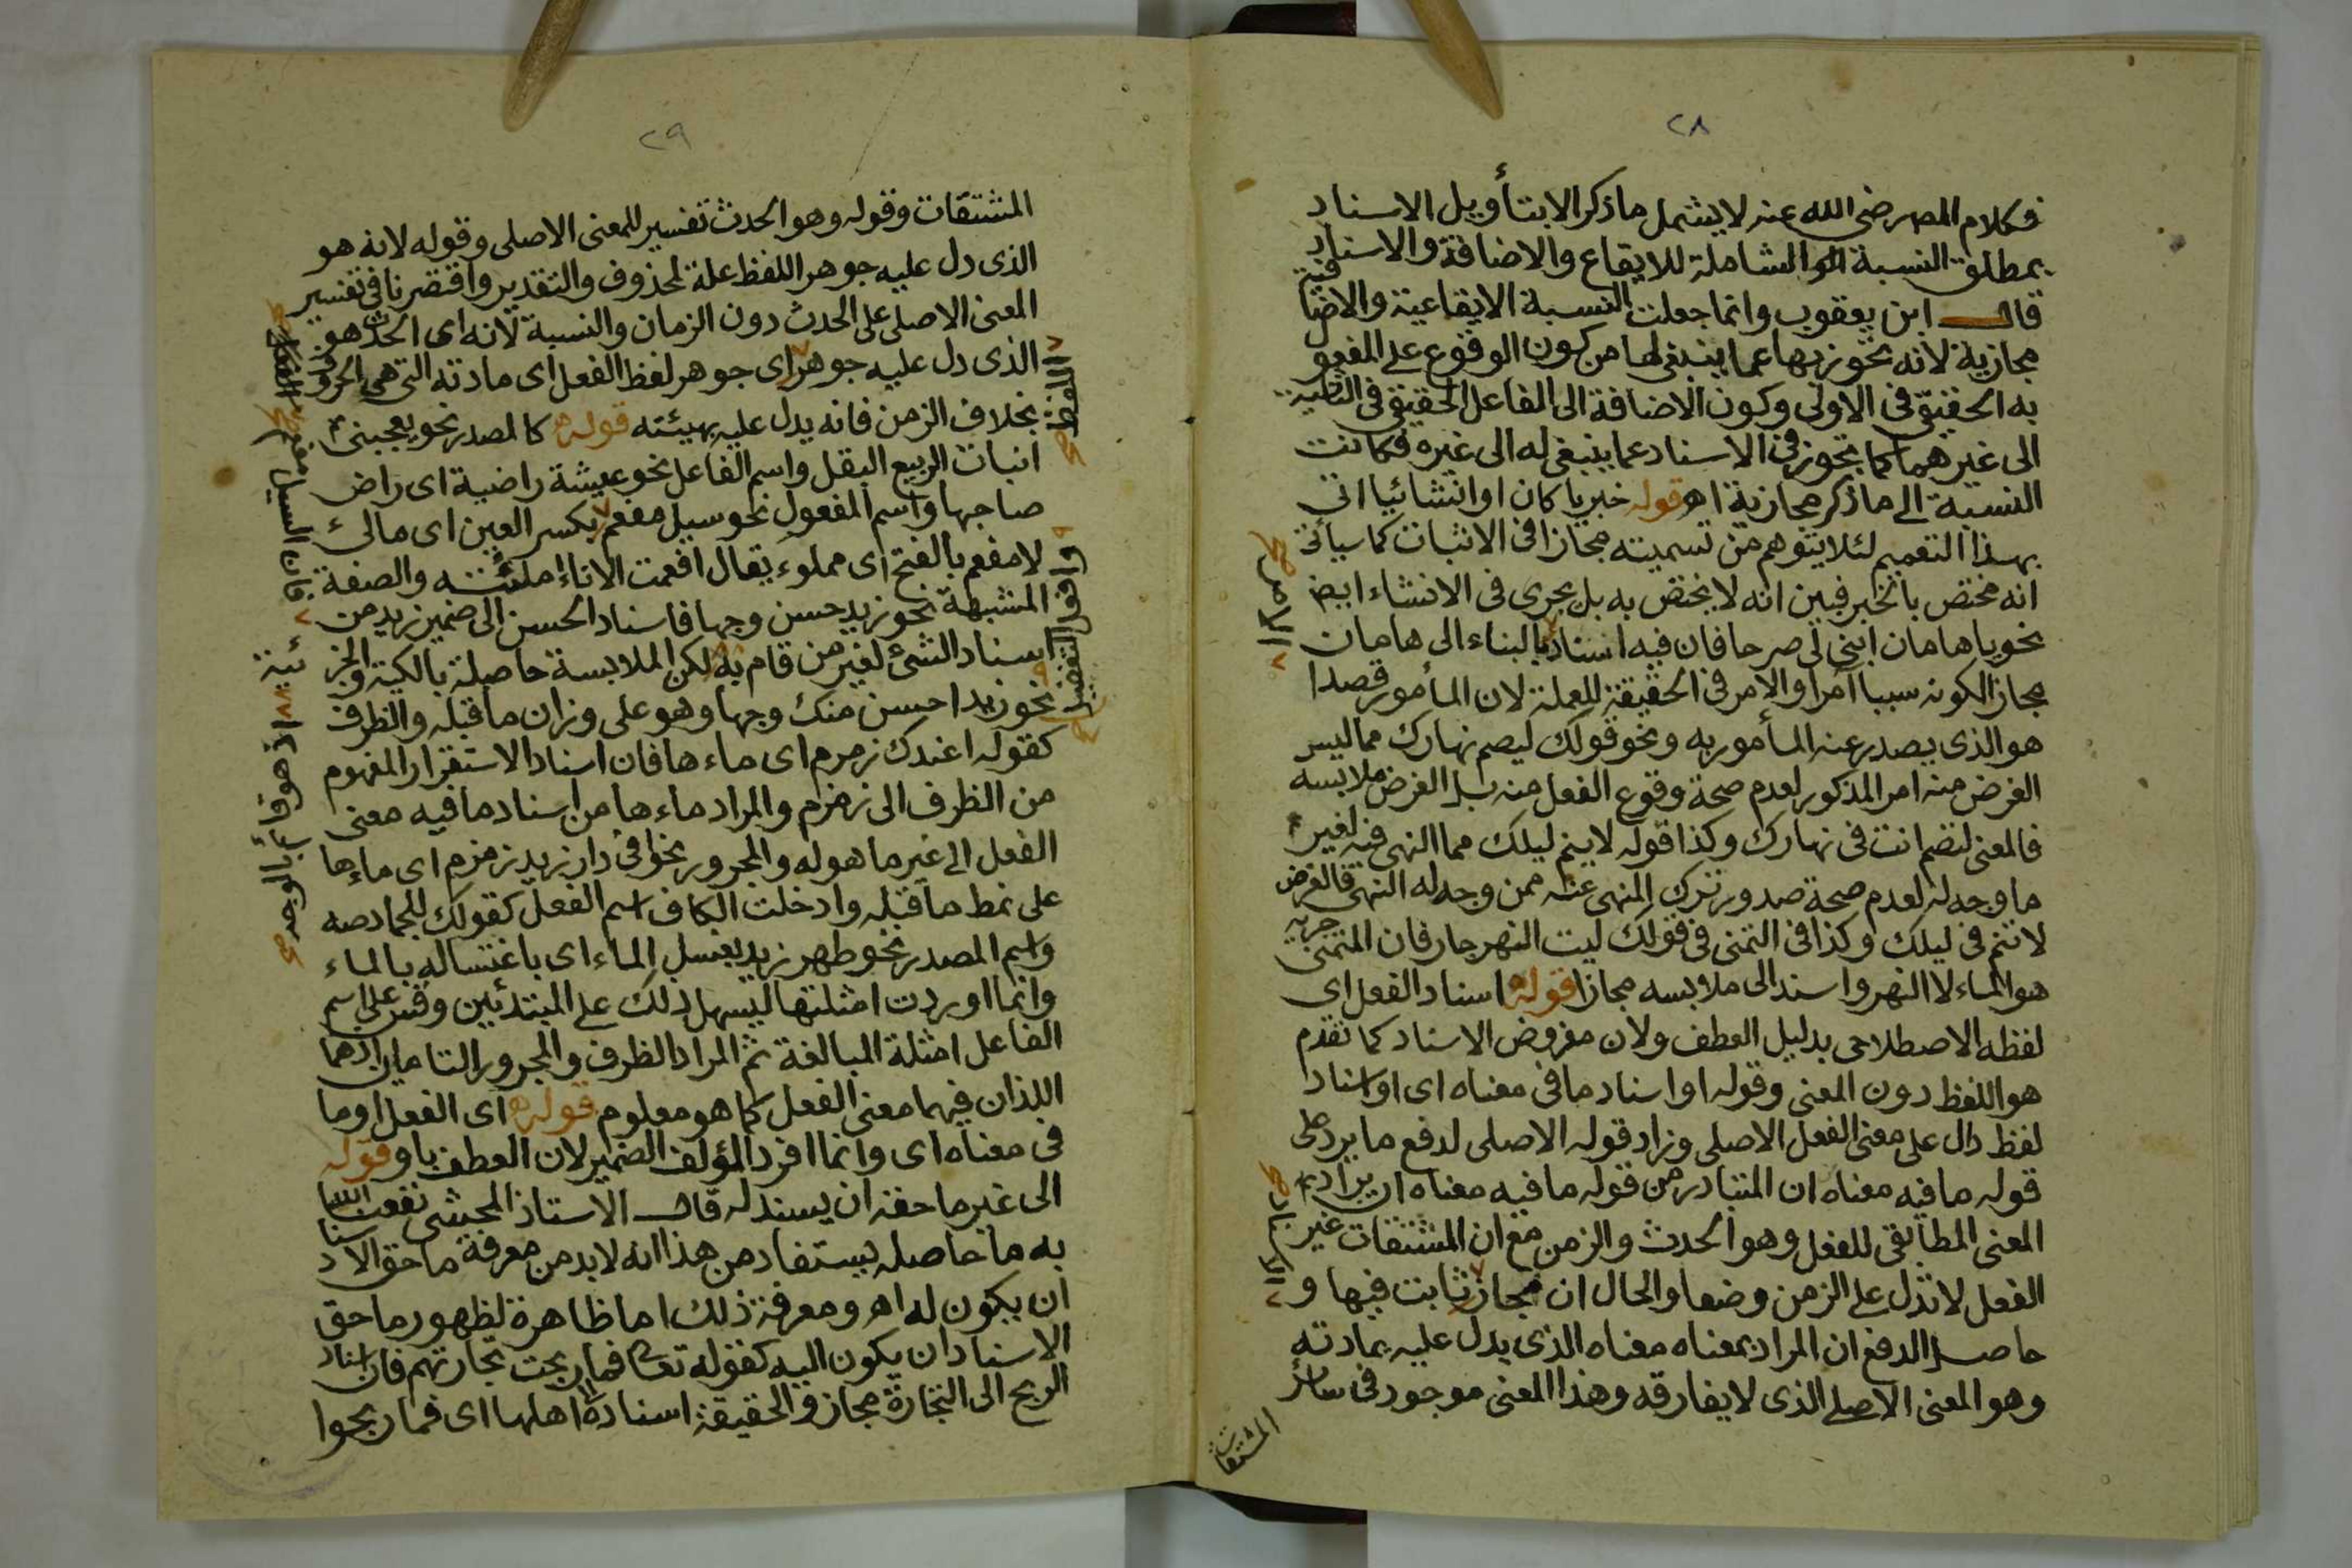 ٢٨
فكلام المصـ رضى الله عنه لا يشمل ما ذكر الا بتأويل الاسناد
بمطلق النسبة الشاملة للايقاع والاضافة والاسناد
قال ابن يعقوب وانما جعلت النسبة الايقاعية والاضافية
مجازية لانه تجوز بها عما ينبغى لها من كون الوقوع على المفعو
به الحقيقى فى الاولى وكون الاضافة الى الفاعل الحقيقى فى الثانية
الى غيرهما كما تجوز فى الاسناد عما ينبغى له الى غيره فكانت
النسبة الى ما ذكر مجازية اهـ قوله خبريا كان او انشائيا اتى
بهذا التعميم لئلا يتوهم من تسميته مجازا فى الاثبات كما سيأتى
انه مختص بالخبر فبين انه لا يختص به بل يجرى فى الانشاء ايضا
نحو يا هامان ابن لى صرحا فان فيه اسناد البناء الى هامان
الامر صح
مجازا لكونه سببا آمرا والامر فى الحقيقة للعملة لان المأمور قصدا
هو الذى يصدر عنه المأمور به ونحو قولك ليصم نهارك مما ليس
الغرض منه امر المذكور لعدم صحة وقوع الفعل منه بل الغرض ملابسه
فالمعنى لتصم انت فى نهارك وكذا قوله لا ينم ليلك مما النهى فيه لغير
ما وجه له لعدم صحة صدور ترك المنهى عنه ممن وجه له النهى فالغرض
لا تنم فى ليلك وكذا فى التمنى فى قولك ليت النهر جار فان المتمنى جريه
هو الماء لا النهر واسند الى ملابسه مجازا قوله اسناد الفعل اى
لفظه الاصطلاحى بدليل العطف ولان مفروض الاسناد كما تقدم
هو اللفظ دون المعنى وقوله او اسناد ما فى معناه اى او اسناد
لفظ دال على معنى الفعل الاصلى وزاد قوله الاصلى لدفع ما يرد على
قوله ما فيه معناه ان المتبادر من قوله ما فيه معناه ان يراد به
المعنى المطابقى للفعل وهو الحدث والزمن مع ان المشتقات غير
الفعل لا تدل على الزمن وضعا والحال ان مجاز ثابت فيها و
الاسناد صح
حاصل الدفع ان المراد بمعناه معناه الذى يدل عليه بمادته
وهو المعنى الاصلى الذى لا يفارقه وهذا المعنى موجود فى سائر
المشتقات
٢٩
المشتقات وقوله وهو الحدث تفسير للمعنى الاصلى وقوله لانه هو
الذى دل عليه جوهر اللفظ علة لمحذوف والتقدير واقتصرنا فى تفسير
المعنى الاصلى على الحدث دون الزمان والنسبة لانه اى الحدث هو
الذى دل عليه جوهر اى جوهر لفظ الفعل اى مادته التى هى الحروف
اللفظ صح
بخلاف الزمن فانه يدل عليه بهيئته قوله كالمصدر نحو يعجبنى
انبات الربيع البقل واسم الفاعل نحو عيشة راضية اى راض
صاحبها واسم المفعول نحو سيل مفعم بكسر العين اى مالئ
لا مفعم بالفتح اى مملوء يقال افعمت الاناء ملئته والصفة
فان السيل مفعم
المشبهة نحو زيد حسن وجها فاسناد الحسن الى ضمير زيد من
اسناد الشئ لغير من قام به لكن الملابسة حاصلة بالكلية والجزئية
اذ هو قائم بالوجه صح
وافعل التفضيل صح
نحو زيد احسن منك وجها وهو على وزان ما قبله والظرف
كقوله اعندك زمزم اى ماءها فان اسناد الاستقرار المفهوم
من الظرف الى زمزم والمراد ماءها من اسناد ما فيه معنى
الفعل الى غير ما هو له والمجرور نحو افى دار زيد زمزم اى ماءها
على نمط ما قبله وادخلت الكاف اسم الفعل كقولك للجماد صه
واسم المصدر نحو طهر زيد بغسل الماء اى باغتساله بالماء
وانما اوردت امثلتها ليسهل ذلك على المبتدئين وقس على اسم
الفاعل امثلة المبالغة ثم المراد الظرف والمجرور التامان اذ هما
اللذان فيهما معنى الفعل كما هو معلوم قوله اى الفعل او ما
فى معناه اى وانما افرد المؤلف الضمير لان العطف باو قوله
الى غير ما حقه ان يسند له قال الاستاذ المحشى نفعنا الله
به ما حاصله يستفاد من هذا انه لا بد من معرفة ما حق الاسناد
ان يكون له اهـ ومعرفة ذلك اما ظاهرة لظهور ما حق
الاسناد ان يكون اليه كقوله تعالى فما ربحت تجارتهم فان اسناد
الربح الى التجارة مجاز والحقيقة اسناده الى اهلها اى فما ربحوا